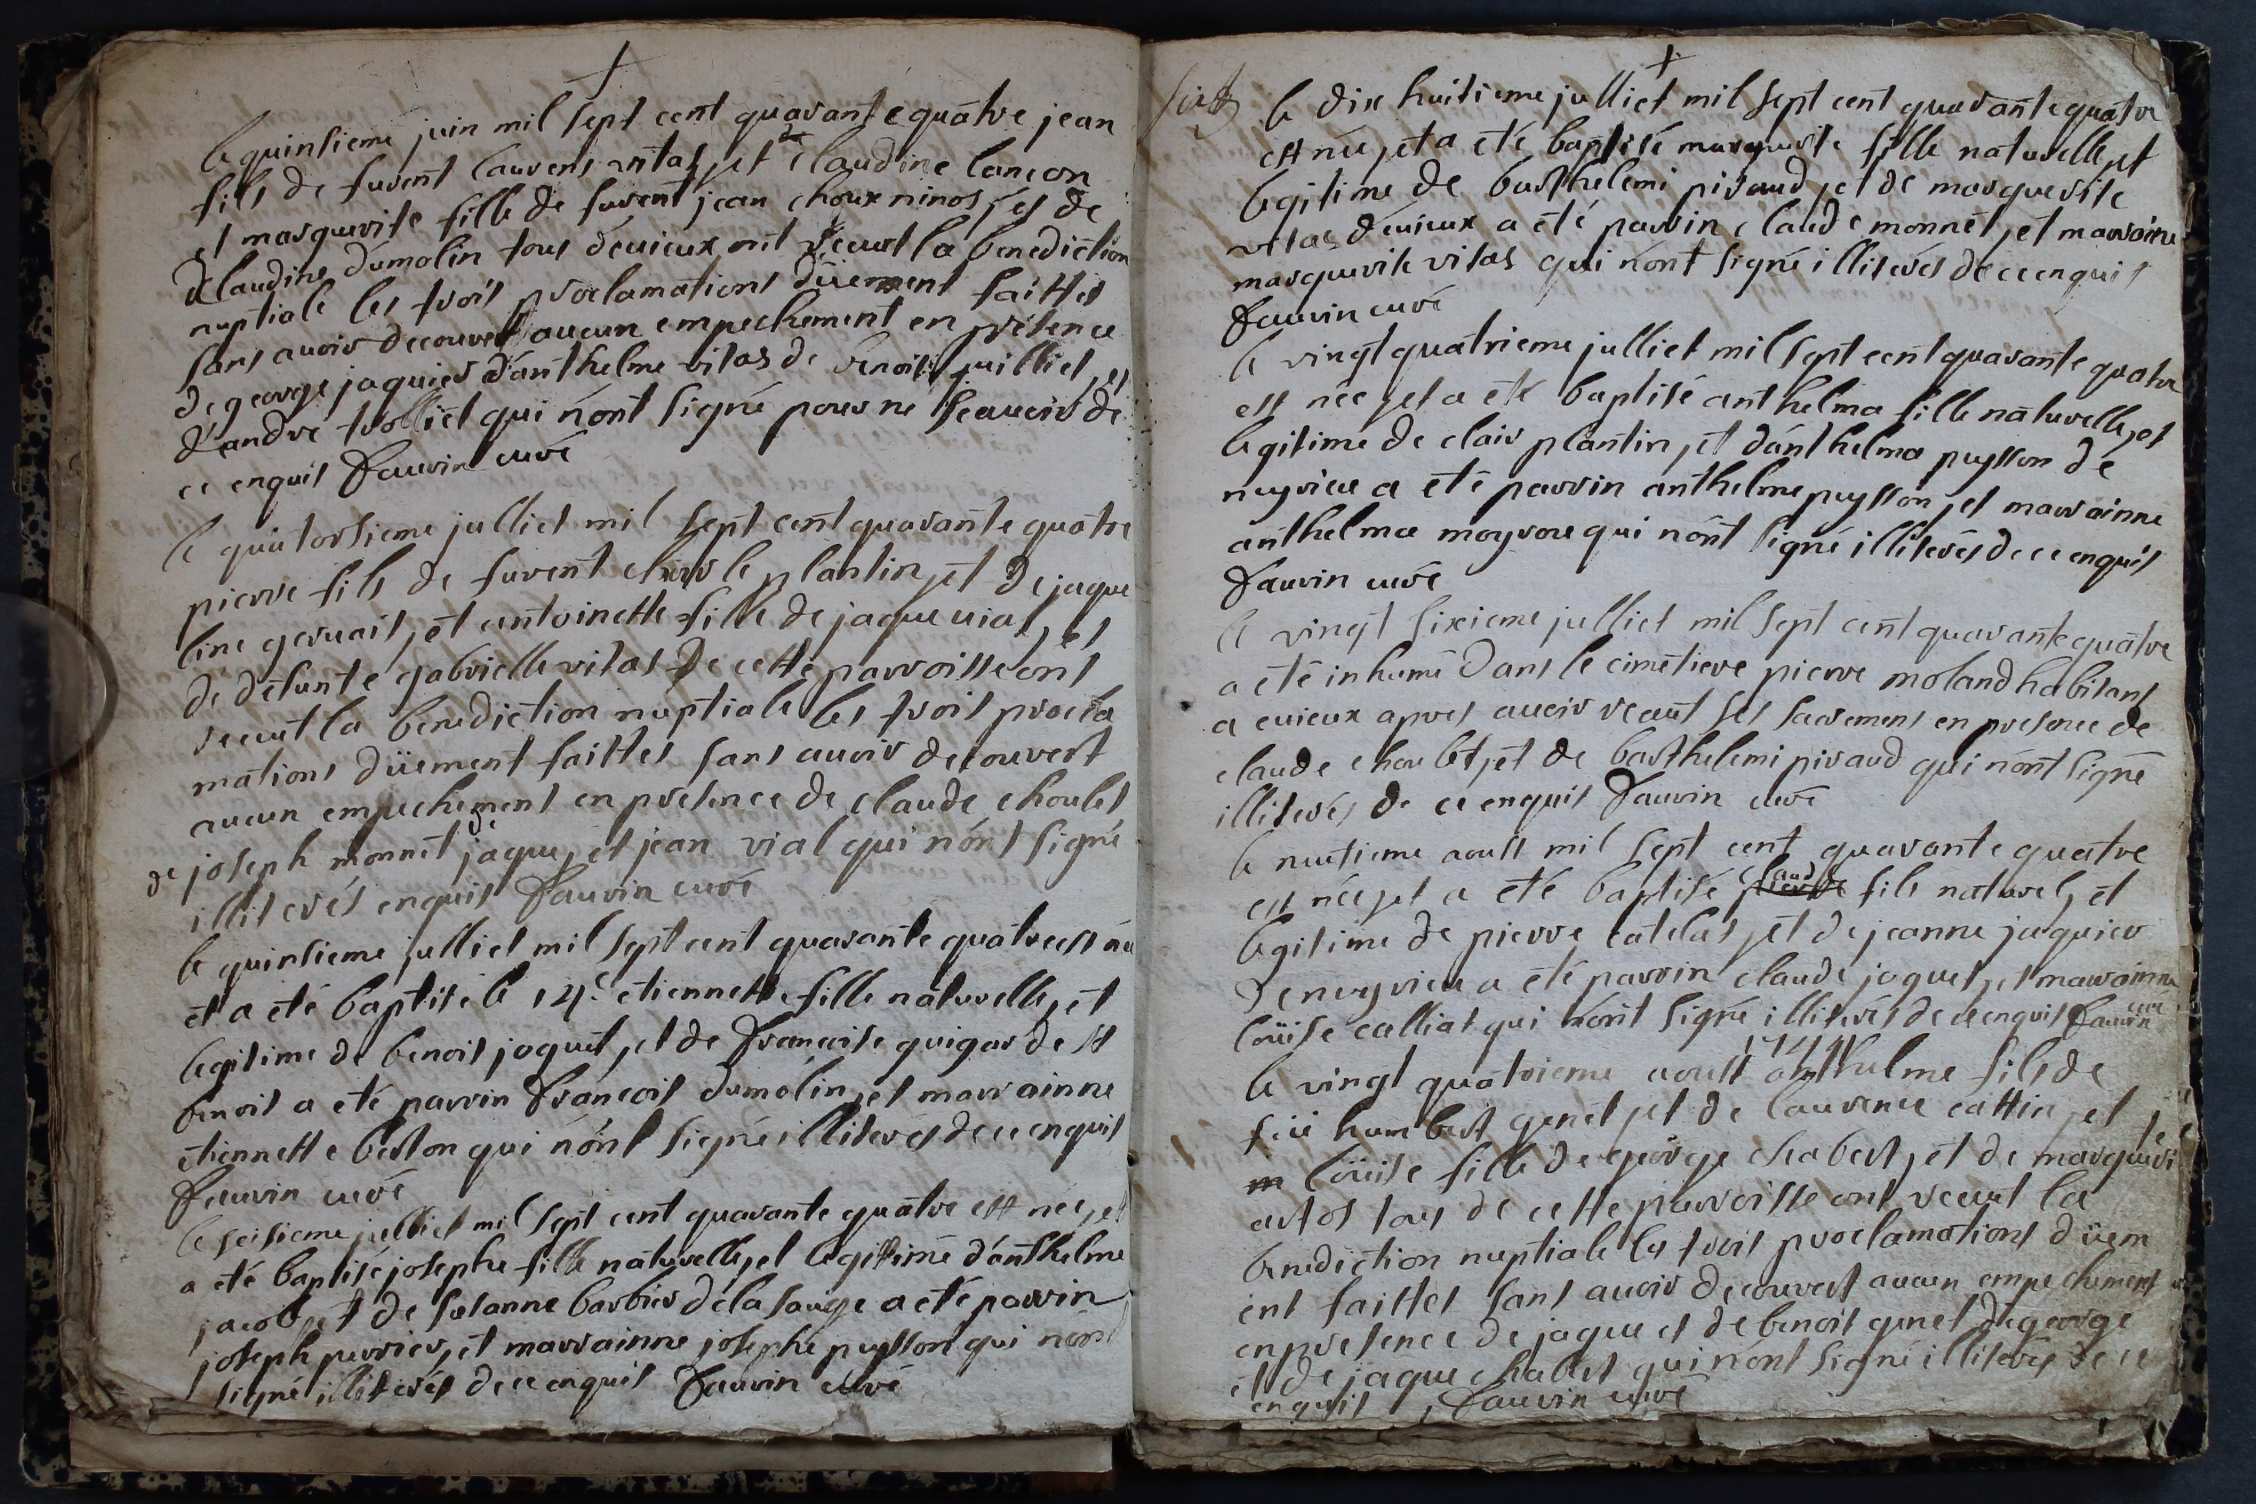 le quinsieme juin mil sept cent quarante quatre jean
fils de furent laurens vitas, et de claudine lancon
et marguerite fille de furent jean choux ninos, et de
claudine dumolin tous d'euieux ont recut la benediction
nuptiale les trois proclamations düement faittes
sans avoir decouvert aucun empechement en présence
de george jaquier d'anthelme vitas de benoit juilliet, et
d'andré trolliet qui n'ont signé pour ne sçauoir de
ce enquis Fauvin curé
le quatorsieme julliet mil sept cent quarante quatre
pierre fils de furent charle plantin, et de jaque
line geruais, et antoinette fille de jaque uial, et
de defunte gabrielle vitas de cette parroisse ont
recut la benediction nuptiale les trois procla
mations düement faittes sans auoir decouvert
aucun empechement en presence de claude choulet
de joseph monnet de jaque, et jean vial qui n'ont signé
illiterés enquis Fauvin curé
le quinsieme julliet mil sept cent quarante quatre est née
et a eté baptisé le etiennette fille naturelle, et
legitime de benoit joquet, et de Francoise guigar de st
benoit a eté parrin Francois dumolin, et marrainne
etiennette berton qui n'ont signé illiterés de ce enquis
Fauvin curé
le seisieme julliet mil sept cent quarante quatre est née, et
a eté baptisé josephe fille naturelle, et legitime d'anthelme
jacob, et de susanne barbier de la sauge a eté parrin
joseph perrier, et marrainne josephe puisson qui n'ont
signé illiterés de ce enquis Fauvin curé
le dix huitieme julliet mil sept cent quarante quatre
est née, et a eté baptisé marguerite fille naturelle, et
legitime de barthelemi piraud, et de marguerite
vitas d'euieux a eté parrin claude monnet, et marraine
marguerite vitas qui n'ont signé illiterés de ce enquis
Fauvin curé
le vingt quatrieme julliet mil sept cent quarante quatre
est née, et a eté baptisé anthelma fille naturelle, et
legitime de clair plantin, et d'anthelma puisson de
nuyrieu a eté parrin anthelme puisson, et marrainne
anthelma qui n'ont signé illiterés de ce enquis
Fauvin curé
le vingt sixieme julliet mil sept cent quarante quatre
a eté inhumé dans le cimetiere pierre moland habitant
a euieux apres auoir recut ses sacremens en presence de
claude choulet, et de barthelemi piraud qui n'ont signé
illiterés de ce enquis Fauvin curé
le huitieme aoust mil sept cent quarante quatre
est née, et a eté baptisé claude fils naturel, et
legitime de pierre catelas, et de jeanne jaquier
de nuyrieu a eté parrin claude joquet, et marrainne
loüise calliat qui n'ont signé illiterés de ce enquis Fauvin curé
le vingt quatrieme aoust 1744 anthelme fils de
feü humbert genet, et de laurence cattin, et
loüise fille de george chabert, et de marguerite
artos tous de cette parroisse ont recut la
benediction nuptiale les trois proclamations düem
ent faittes sans auoir decouvert aucun empechement
en presence de jaque et de benoit genet de george
et de jaque chabert qui n'ont signé illiterés de ce
enquis Fauvin curé